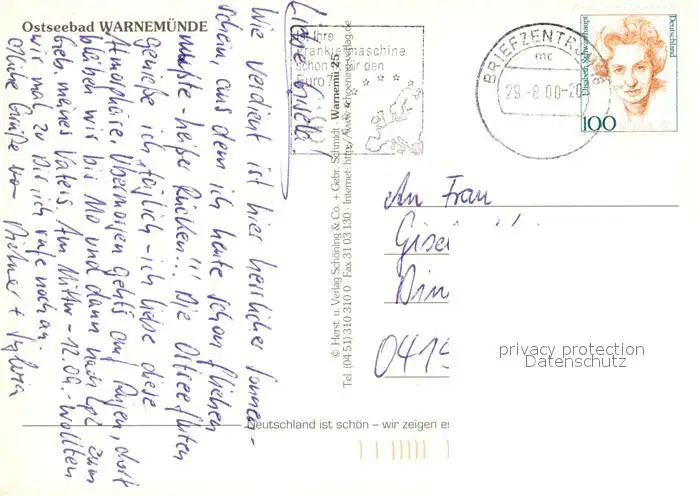 Ostseebad WARNEMÜNDE
Liebe Gisela!
Wie verdient ist hier herrlicher Sonnen-
schein, aus dem ich heute schon fliehen
mußte - heißer Rücken!!! Die Ostseefluten
genieße ich täglich - ich liebe diese
Atmosphäre. Übermorgen gehts auf Rügen, dort
bleiben wir bis Mo und dann nach Lpz. zum
Geb. meines Vaters. Am Mittw. - 12.09. - wollten
wir mal zu Dir, ich rufe noch an
Liebe Grüße von Dietmar + Sylvia
© Herst. u. Verlag Schöning & Co. + Gebr. Schmidt Warnemü 25
Tel. (04 51) 310 310 0 · Fax 31 03 130 · Internet: http://www.schoening-verlag.de
Ihre
Frankiermaschine
schon für den
Euro
BRIEFZENTRUM
mc
29.-8.00-20
Elisabeth Schwarzhaupt
Deutschland
100
An Frau
Gisel
Din
0419
privacy protection
Datenschutz
Deutschland ist schön – wir zeigen es